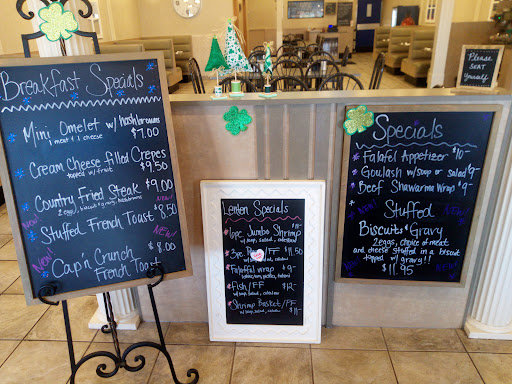 Breakfast Specials
Mini Omelet w/ hashbrowns
1 meat & 1 cheese
$7.00
Cream Cheese filled Crepes
topped w/ fruit
$9.50
Country Fried Steak $9.00
2 eggs, biscuits & gravy, hashbrowns
NEW!
Stuffed French Toast 8.50
NEW!
NEW!
Cap'n Crunch $8.00
French Toast
Lenten Specials
Jumbo Shrimp
w/ soup, salad, coleslaw
3pc. /FF $11.50
w/ soup, salad, coleslaw
Falafel Wrap $9-
Fish/FF $12-
w/ soup, salad, coleslaw
Shrimp Basket/FF
w/ soup, salad, coleslaw $11-
Please
SEAT
Yourself
Specials
Falafel Appetizer $10-
Goulash w/ soup or salad $9-
Beef Shawarma Wrap $9-
Stuffed
NEW!
NEW!
Biscuits & Gravy
2 eggs, choice of meat
and cheese stuffed in a biscuit
topped w/ gravy!!
NEW!
$11.95
NEW!